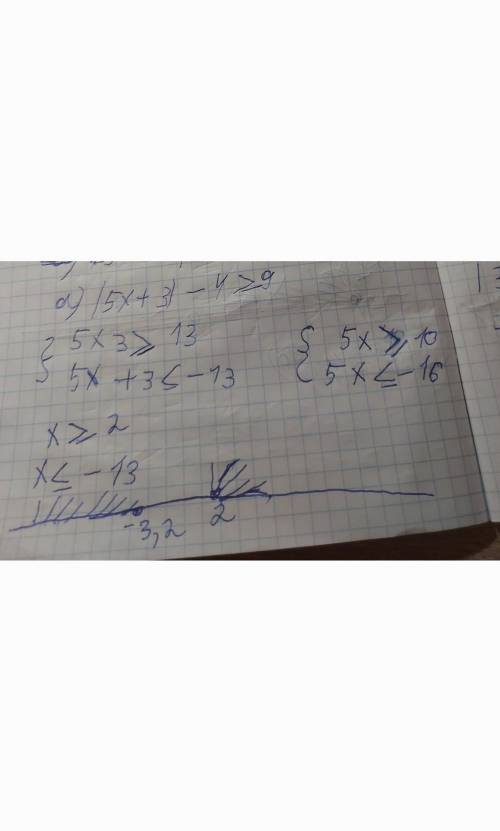 а) |5x+3| - 4 ≥ 9
{ 5x 3 ≥ 13
5x + 3 ≤ -13
{ 5x ≥ 10
5x ≤ -16
x ≥ 2
x ≤ -13
-3,2 2